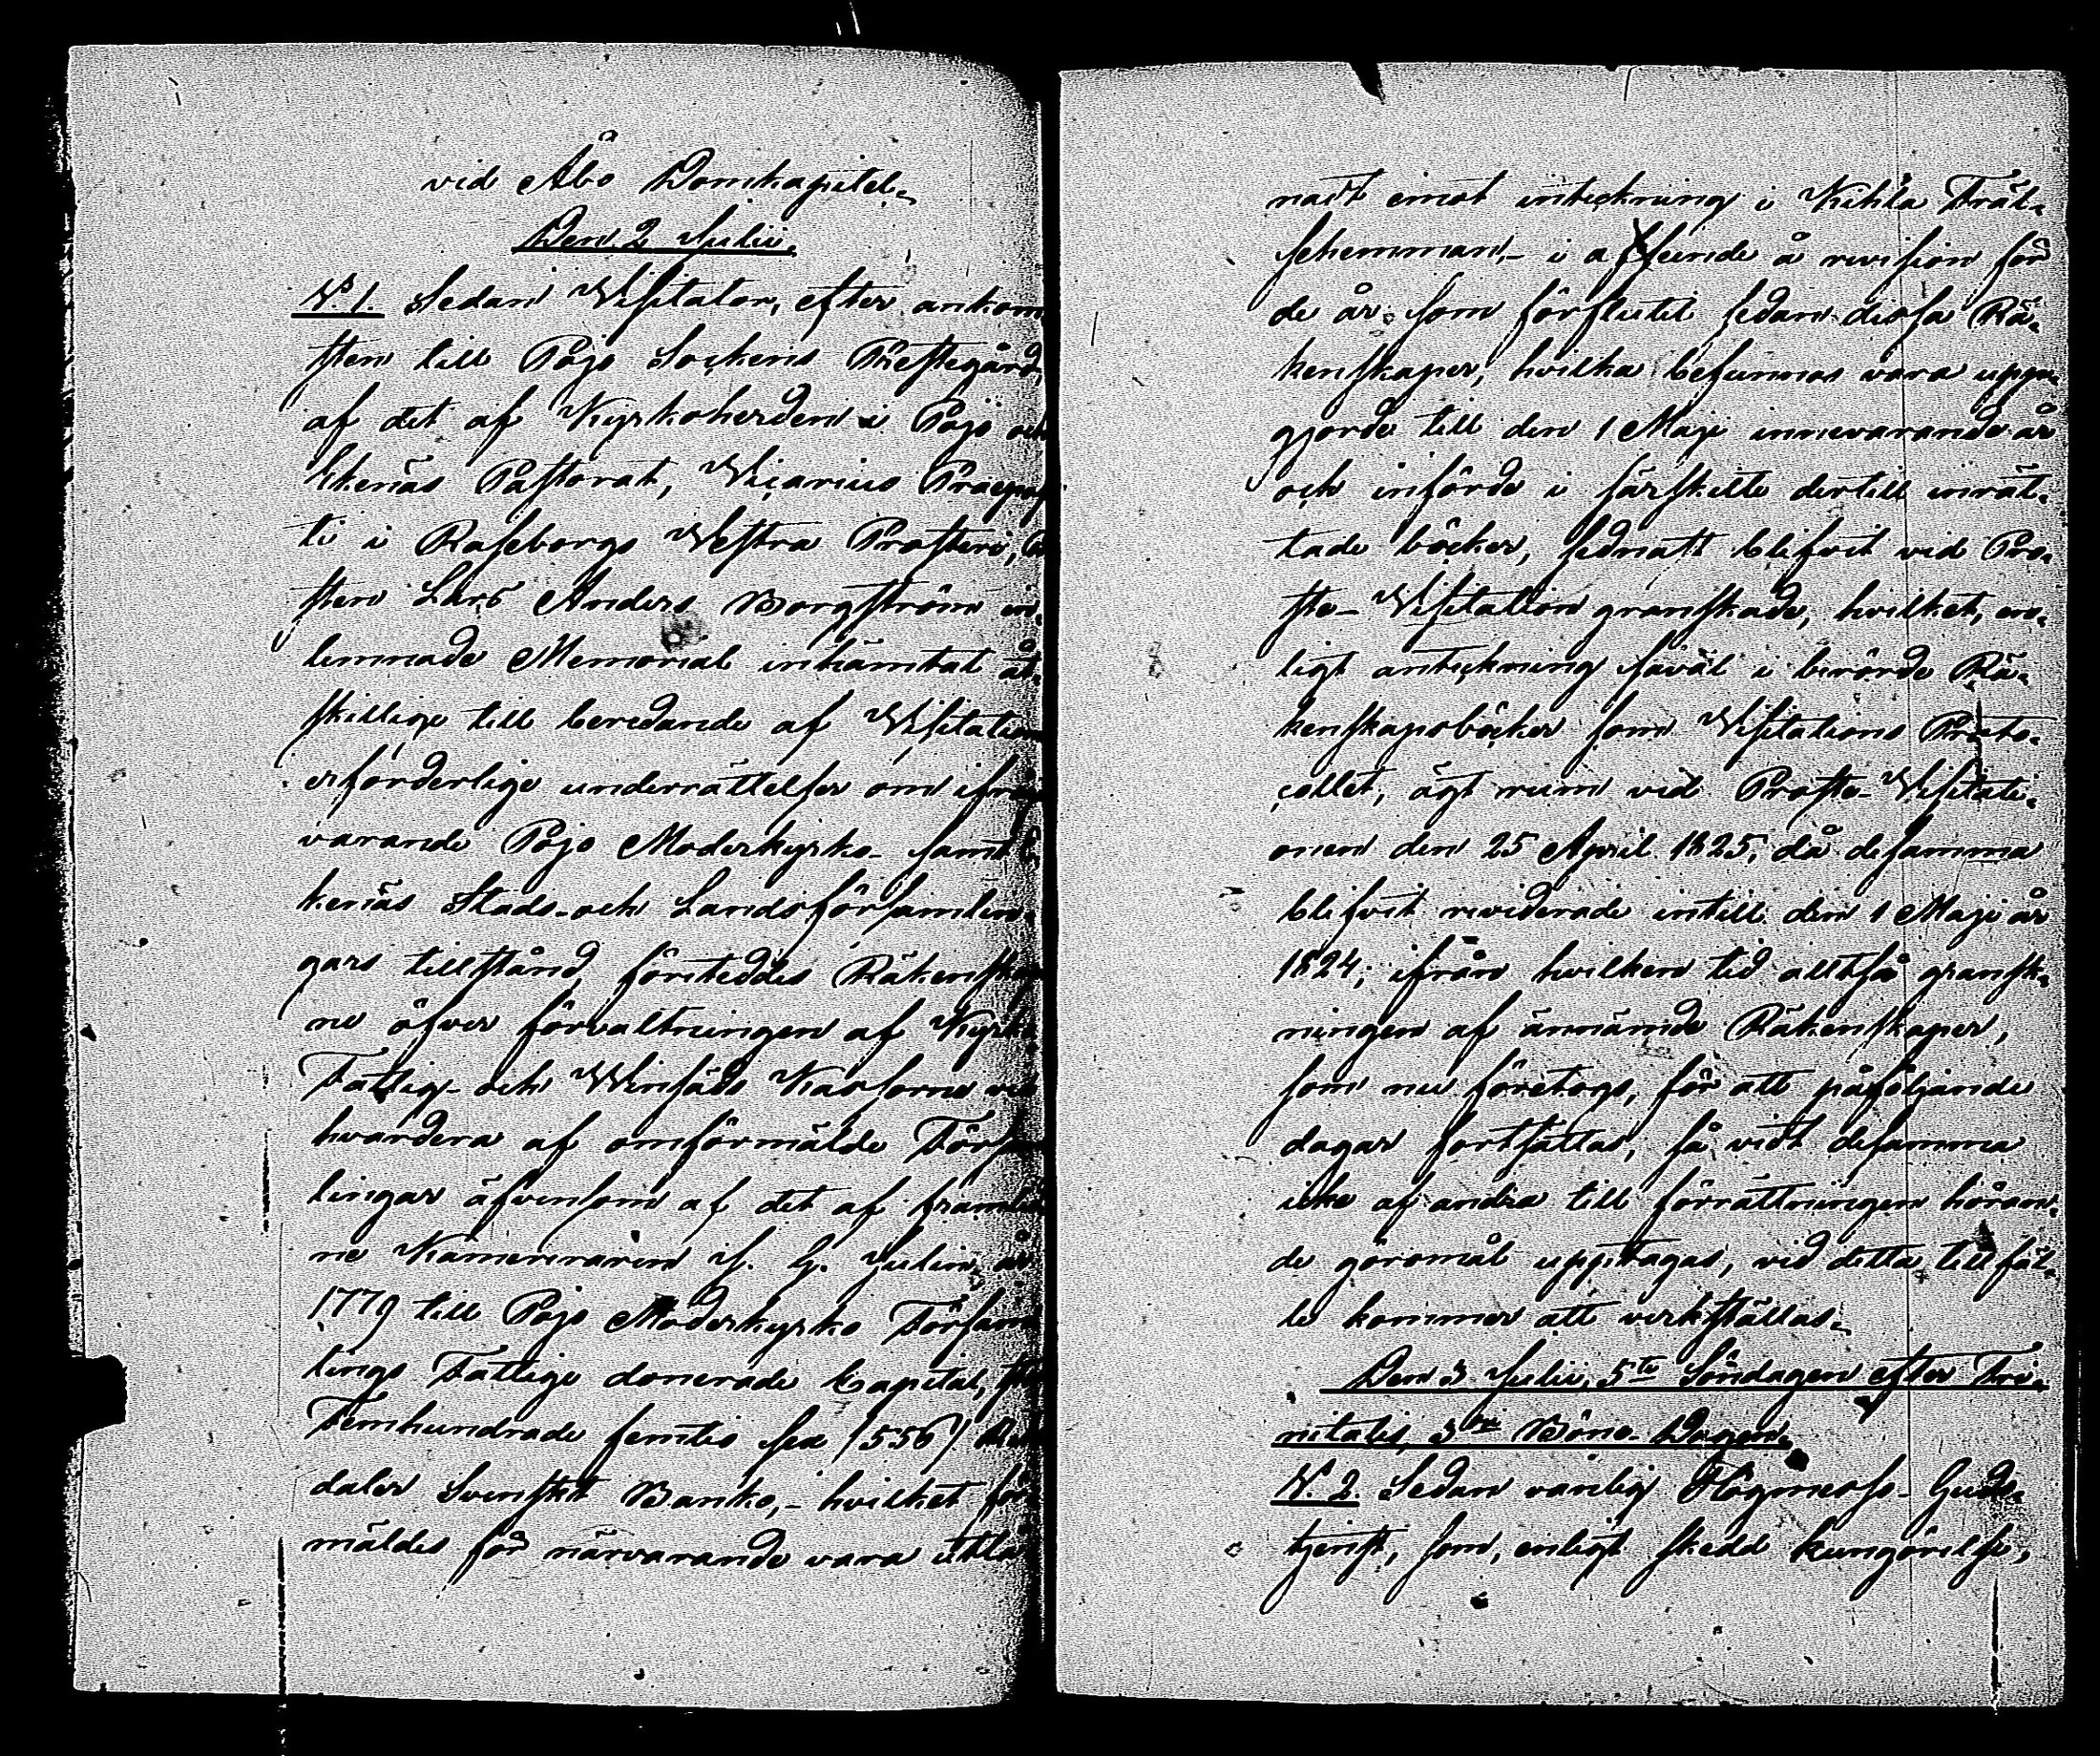 vid Åbo Domkapitel.
Den 2 Julii.
N:o 1. Sedan Visitator, efter ankom-
sten till Pojo Sockens Prestegård,
af det af Kyrkoherden i Pojo och
Ekenäs Pastorat, Vicarius Praeposi-
ti i Raseborgs Westra Prosteri,
sten Lars Anders Borgström in-
lemnade Memorial inhämtat åt-
skillige till beredande af Visitation
erforderlige underrättelser om ifrå
varande Pojo Moderkyrko- samt E-
kenäs Stads- och Landsförsamlin-
gars tillstånd, företeddes Räkenska
ne öfver förvaltningen af Kyrko
Fattig- och Winsäds Kassorne vid
hvardera af omförmälde Försam
lingar äfvensom af det af framlid
ne Kamereraren J. G. Julin, år
1779 till Pojo Moderkyrko Försam
lings Fattige donerade Capital,
Femhundrade femtio sex (556) Riks
daler Svenskt Banko,- hvilket för
mäldes för närvarande vara utlå
nadt emot inteckning i Kihla Fräl-
sehemman,- i afseende å revision för
de år, som förflutit sedan dessa Rä-
kenskaper, hvilka befunnos vara upp-
gjorde till den 1 Maji innevarande år
och införde i särskilte dertill inrät-
tade böcker, sednast blifvit vid Pro-
ste-Visitation granskade, hvilket, en-
ligt anteckning såväl i berörde Rä-
kenskapsböcker som Visitations Proto-
collet, ägt rum vid Proste-Visitati-
onen den 25 April 1825, då desamma
blifvit reviderade intill den 1 Maji år
1824; ifrån hvilken tid alltså gransk-
ningen af ännämde Räkenskaper,
som nu företogs, för att påföljande
dagar fortsättas, så vidt desamma
icke af andra till förrättningen höran-
de göromål upptagas, vid detta tillfäl-
le kommer att verkställas.
Den 3 Julii, 5te Söndagen efter Tri-
nitatis, 3dje Böne-Dagen.
N. 2. Sedan vanlig Högmesso-Guds-
tjenst, som, enligt skedd kungörelse,